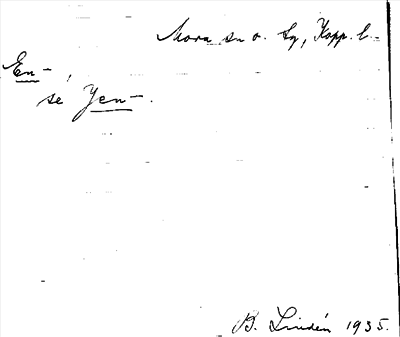 Mora sn o. tg, Kopp. l.
En-,
se Yen-.
B. Lindén 1935.